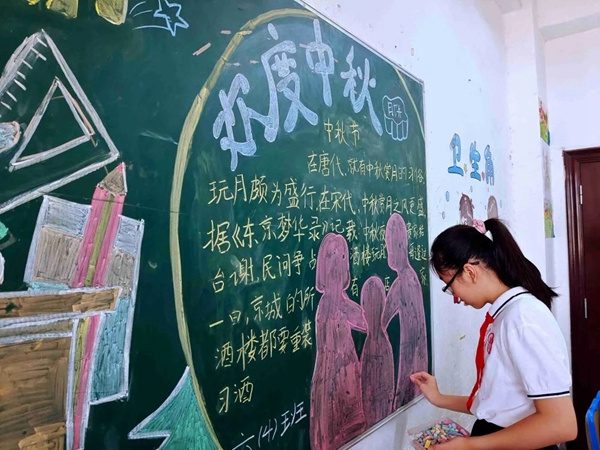 欢度中秋
中秋节
在唐代,就有中秋赏月的习俗
玩月颇为盛行,在宋代,中秋赏月之风更盛
据《东京梦华录》记载,中秋 家结
台谢,民间争占 酒楼玩月
一日,京城的所有
酒楼都要重装
习酒
六(4)班
卫生角